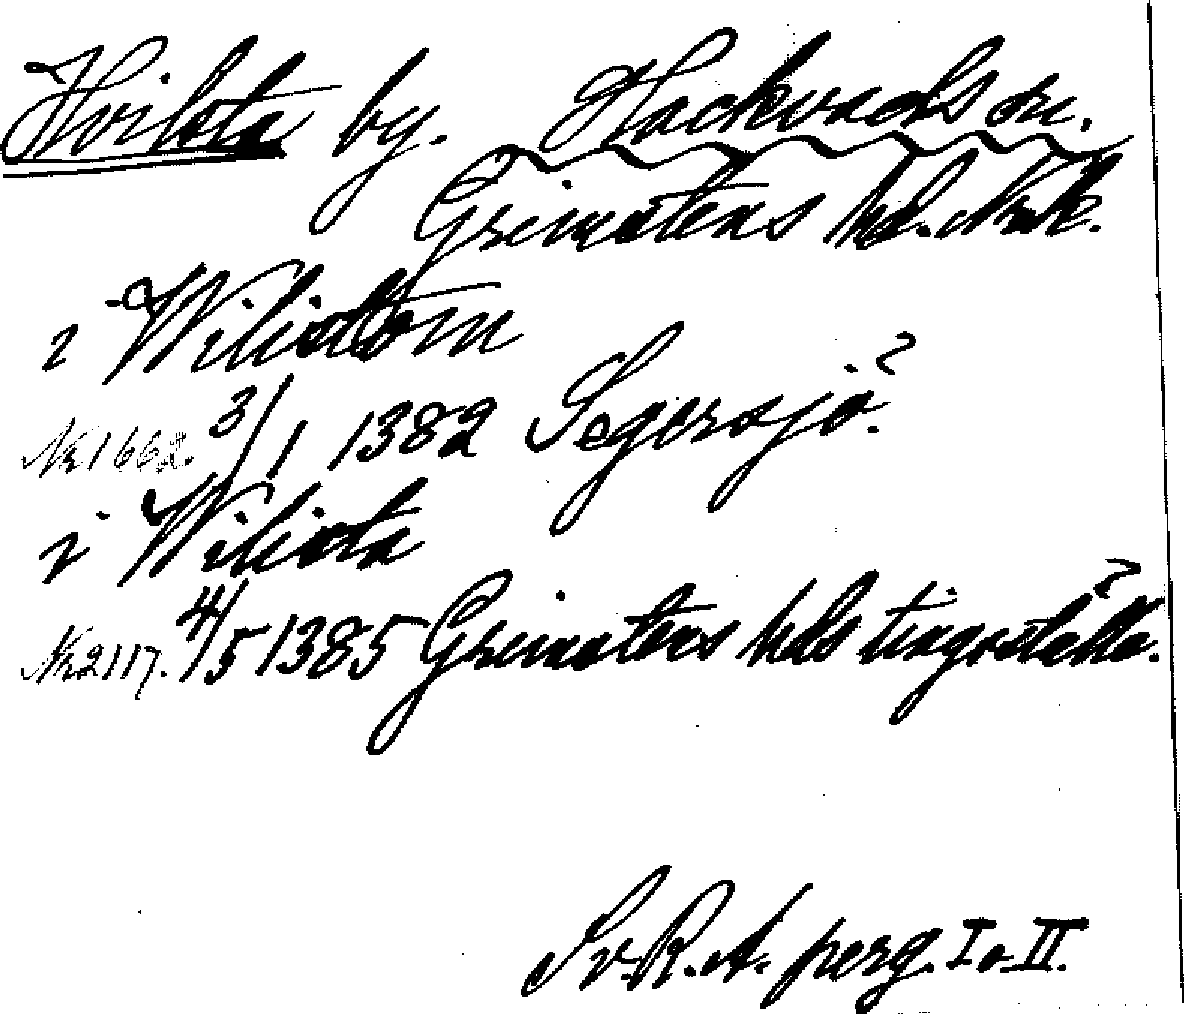 Hvilsta by. Hackvads sn.
Grimstens hd. Närke.
i Wiliastom
Nr 1662. 3/1 1382 Segersjö?
i Wiliasta
Nr 2117. 4/5 1385 Grimstens hds tingställe?
Sv. R. A. perg. I o. II.